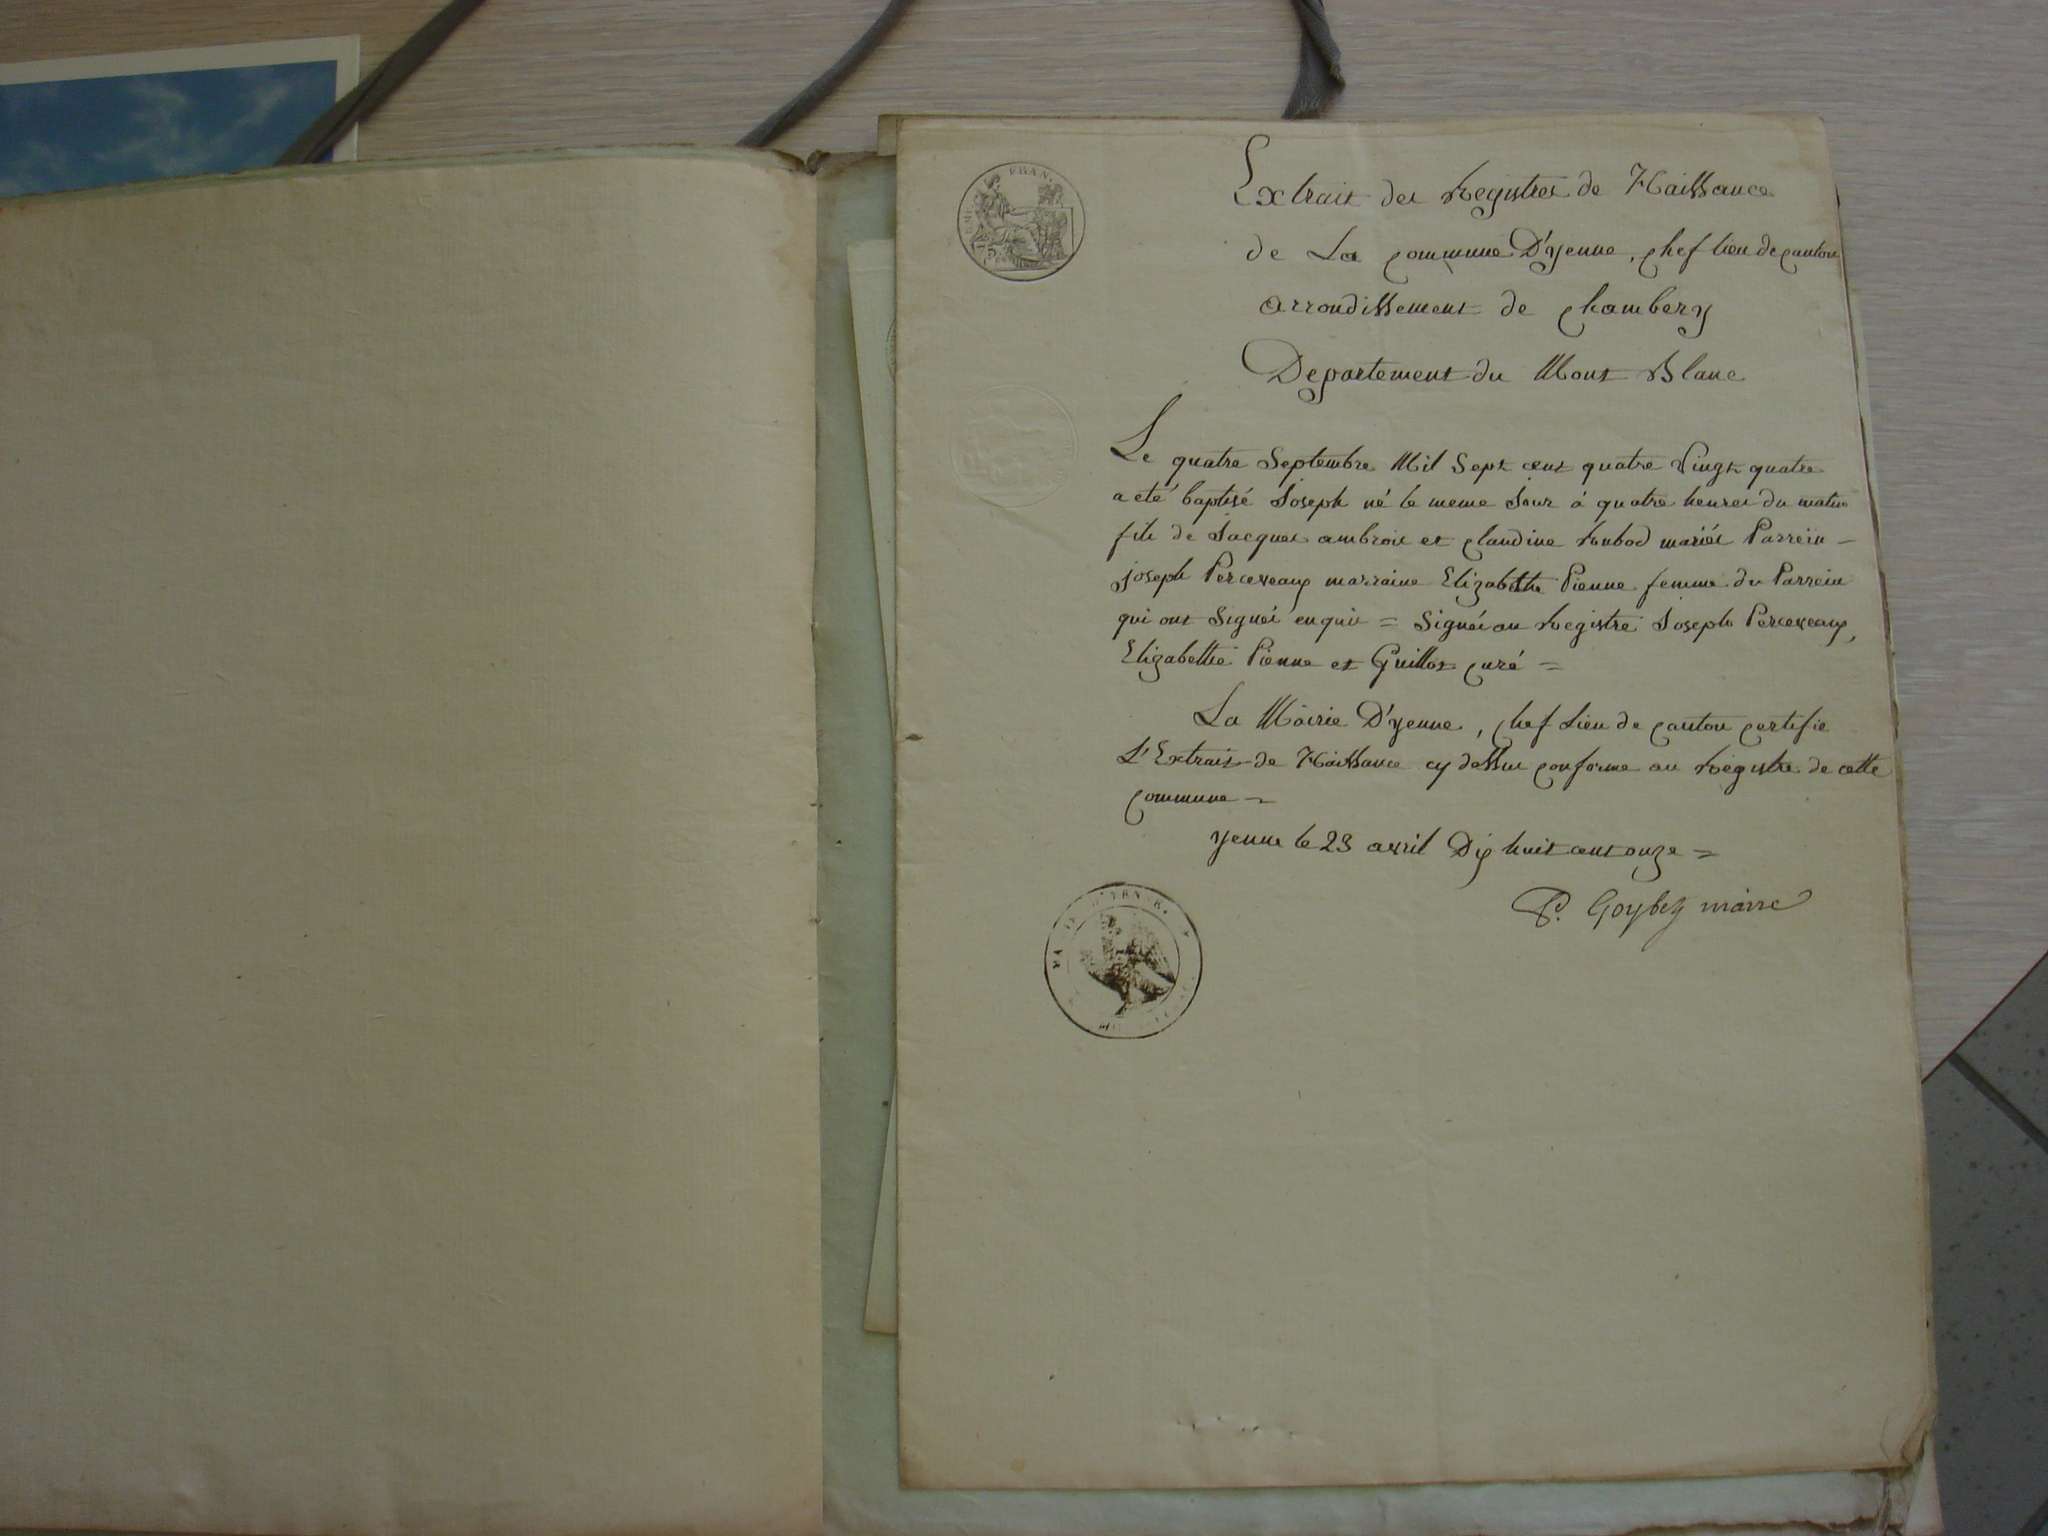 Extrait des Registres de Naissance
de La commune D'yenne, chef lieu de canton
arrondissement de chambery
Departement du Mont Blanc
Le quatre Septembre Mil Sept cent quatre Vingt quatre
a eté baptisé Joseph né le meme Jour à quatre heures du matin
fils de Jacques ambrois et claudine Rubod mariés Parrein
joseph Perceveaux marraine Elizabethe Pienne femme du Parrein
qui ont Signés = Signés au Registre Joseph Perceveaux,
Elizabethe Pienne et Guillot curé =
La Mairie D'yenne, chef Lieu de canton certifie
L'Extrait de Naissance cy dessus conforme au Registre de cette
commune
yenne le 23 avril Dix huit cent onze =
P. Goybet maire